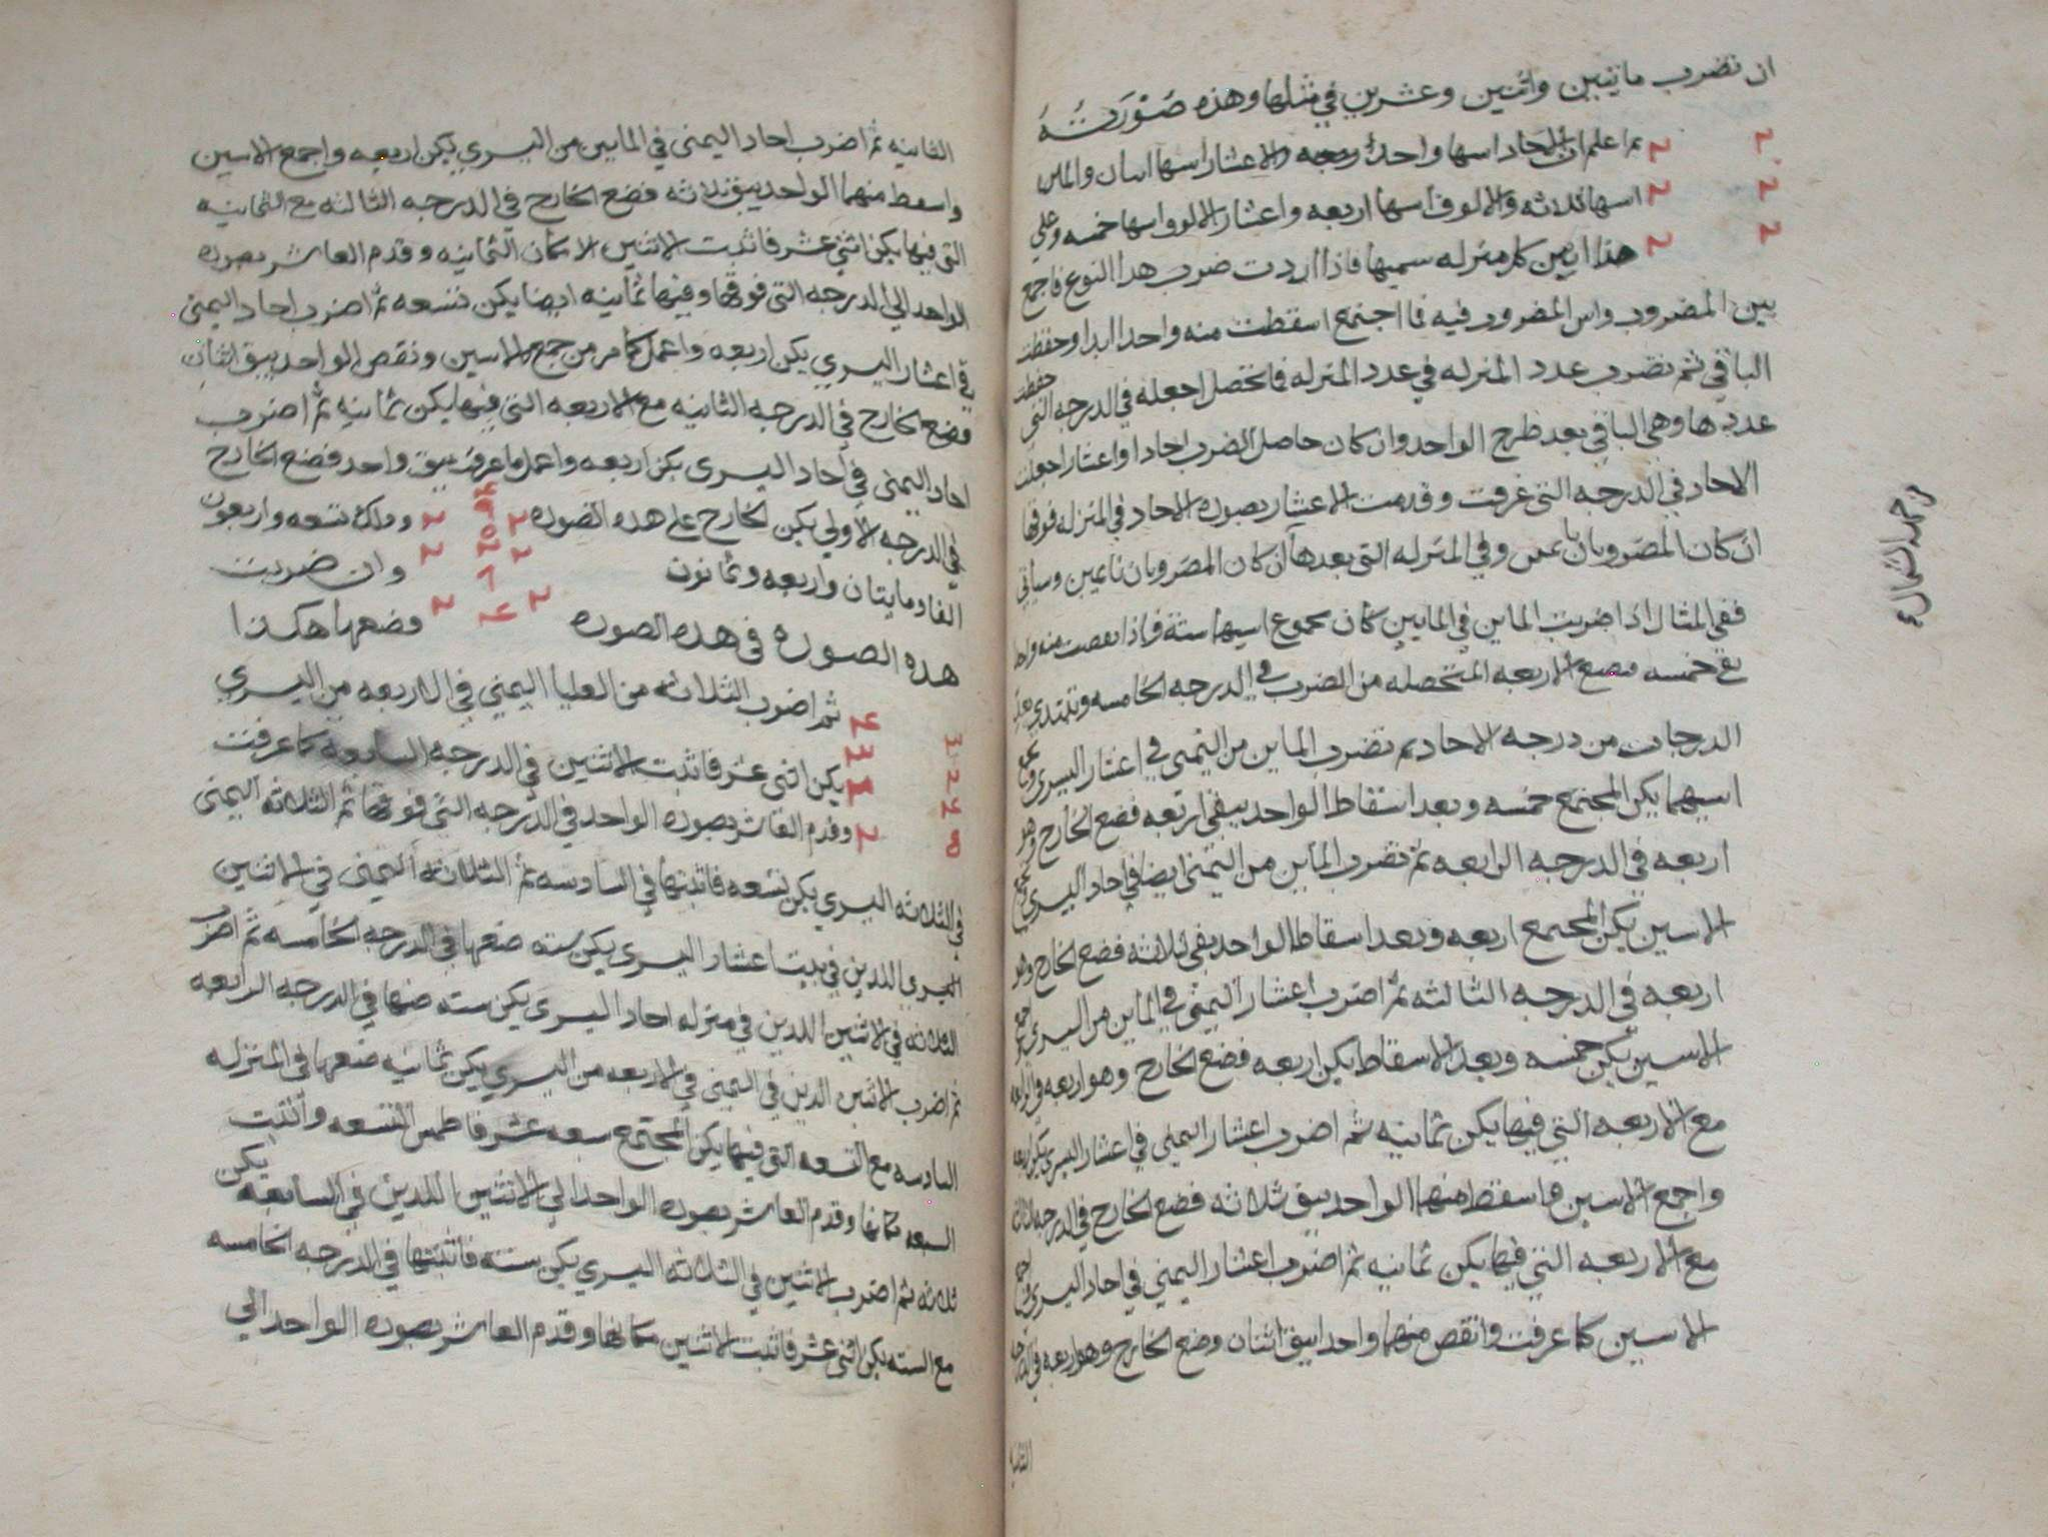 ان نضرب مايتين واثنين وعشرين في مثلها وهذه صورته
٢ ٢ ثم اعلم ان الاحاد اسها واحد والاعشار اسها اسان والماين
٢ ٢ اسها ثلاثه والالوف اسها اربعه واعشار الالوف اسها خمسه وعلي
٢ ٢ هذا ابن كل منزله سميها فاذا اردت ضرب هدا النوع فاجمع
بين المضروب واس المضروب فيه فما اجتمع اسقطت منه واحدا ابدا وحفظت
الباقي ثم تضرب عدد المنزله في عدد المنزله فما تحصل اجعله في الدرجه التي حفظت
عددها وهي الباقي بعد طرح الواحد وان كان حاصل الضرب احادا واعشارا جعلت
الاحاد في الدرجه التي عرفت وقدمت الاعشار بصوره الاحاد في المنزله فوقها
ان كان المضروبان وفي المنزله التي بعدها ان كان المضروبان ناعمين وسياتي
ففي المثال اذا ضربت الماين في الماين كان مجموع اسيهما سته فاذا نقصت منه واحد
بقي خمسه فضع الاربعه المتحصله من الضرب في الدرجه الخامسه وتبتدي بعد
الدرجات من درجه الاحاد ثم تضرب الماين من اليمني في اعشار اليسري وتجمع
اسيهما يكن المجتمع خمسه وبعد اسقاط الواحد يبقي اربعه فضع الخارج وهو
اربعه في الدرجه الرابعه ثم تضرب الماين من اليمني ايضا في احاد اليسري وتجمع
الاسين يكن المجتمع اربعه وبعد اسقاط الواحد يبقي ثلاثه فضع الخارج وهو
اربعه في الدرجه الثالثه ثم اضرب اعشار اليمني في الماين من اليسري واجمع
الاسين يكن خمسه وبعد الاسقاط يكن اربعه فضع الخارج وهو اربعه في الرابعه
مع الاربعه التي فيها يكن ثمانيه ثم اضرب اعشار اليمني في اعشار اليسري يكن اربعه
واجمع الاسين فاسقط منهما الواحد يبق ثلاثه فضع الخارج في الدرجه الثالثه
مع الاربعه التي فيها يكن ثمانيه ثم اضرب اعشار اليمني في احاد اليسري واجمع
الاسين كما عرفت وانقص منهما واحدا يبق اثنان وضع الخارج وهو اربعه في الدرجه
الثانيه
الثانيه ثم اضرب احاد اليمني في الماين من اليسري يكن اربعه واجمع الاسين
واسقط منهما الواحد يبق ثلاثه فضع الخارج في الدرجه الثالثه مع الثمانيه
التي فيها يكن اثني عشر فاثبت الاثنين لا مكان الثمانيه وقدم العاشر بصوره
الواحد الي الدرجه التي فوقها وفيها ثمانيه ايضا يكن تسعه ثم اضرب احاد اليمني
في اعشار اليسري يكن اربعه واعمل كما مر من جمع الاسين ونقص الواحد يبق اثنان
فضع الخارج في الدرجه الثانيه مع الاربعه التي فيها يكن ثمانيه ثم اضرب
احاد اليمني في احاد اليسري يكن اربعه واعمل ما عرفت يبق واحد فضع الخارج
في الدرجه الاولي يكن الخارج علي هده الصوره ٢ ٢ وذلك تسعه واربعون
الفا ومايتان واربعه وثمانون ٢ ٢ وان ضربت
هده الصوره في هده الصوره ٢ ٢ وضعها هكدا
ثم اضرب الثلاثه من العليا اليمني في الاربعه من اليسري
يكن اثني عشر فاثبت الاثنين في الدرجه السادسه كما عرفت
وقدم العاشر بصوره الواحد في الدرجه التي فوقها ثم الثلاثه اليمني
في الثلاثه اليسري يكن تسعه فاثبتها في السادسه ثم الثلاثه اليمني في الاثنين
اللدين في بيت اعشار اليسري يكن سته ضعها في الدرجه الخامسه ثم اضرب
الثلاثه في الاثنين اللدين في منزله احاد اليسري يكن سته ضعها في الدرجه الرابعه
ثم اضرب الاثنين الدين في اليمني في الاربعه من اليسري يكن ثمانيه ضعها في المنزله
السادسه مع التسعه التي فيها يكن المجتمع سبعه عشر فاطمس التسعه واثبت
السبعه مكانها وقدم العاشر بصوره الواحد الي الاثنين اللدين في السابعه يكن
ثلاثه ثم اضرب الاثنين في الثلاثه اليسري يكن سته فاثبتها في الدرجه الخامسه
مع السته يكن اثني عشر فاثبت الاثنين مكانها وقدم العاشر بصوره الواحد الي